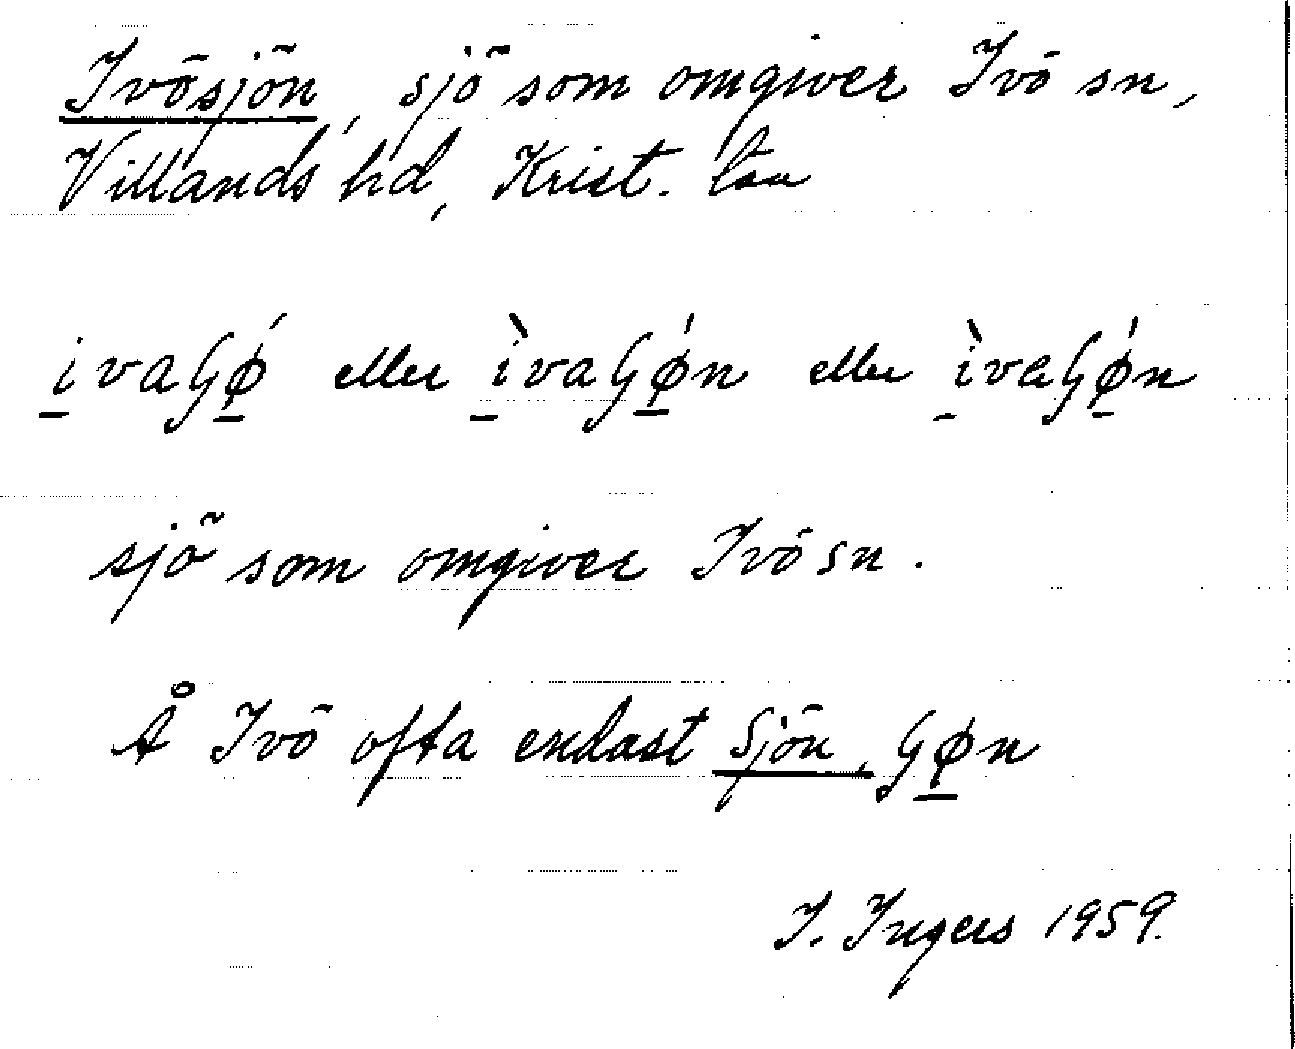 Ivösjön, sjö som omgiver Ivö sn,
Villands hd, Krist. län
ivaɧǿ eller ìvaɧǿn eller ìvaɧǿn
sjö som omgiver Ivö sn.
Å Ivö ofta endast Sjön, ɧøn
I. Ingers 1959.